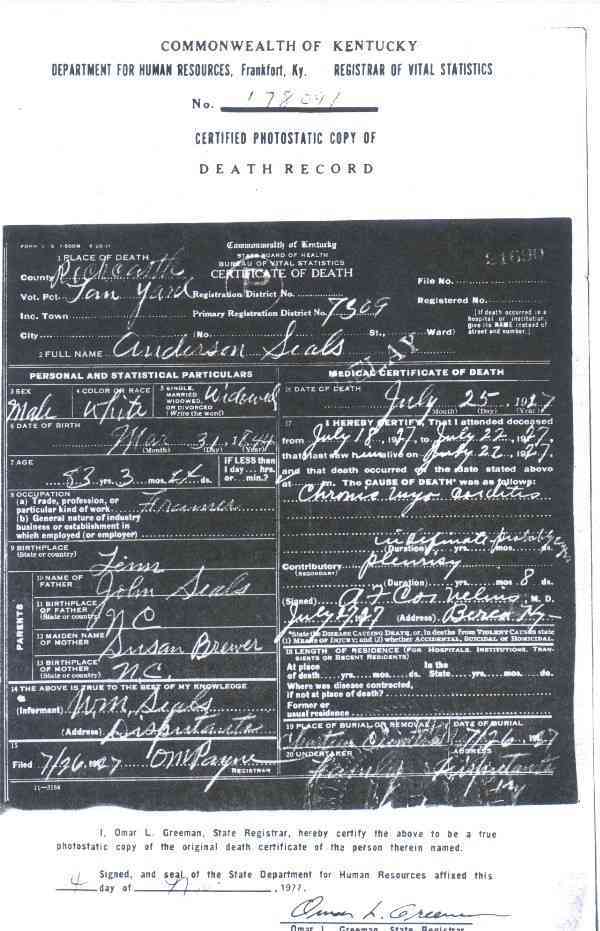 COMMONWEALTH OF KENTUCKY
DEPARTMENT FOR HUMAN RESOURCES, Frankfort, Ky. REGISTRAR OF VITAL STATISTICS
No. 178091
CERTIFIED PHOTOSTATIC COPY OF
DEATH RECORD
Commonwealth of Kentucky
STATE BOARD OF HEALTH
BUREAU OF VITAL STATISTICS
CERTIFICATE OF DEATH
21690
1 PLACE OF DEATH
County Rockcastle
Vot. Pct. Tan Yard Registration District No.
File No.
Inc. Town Primary Registration District No. 7309
Registered No.
City (No. St., Ward)
[If death occurred in a hospital or institution, give its NAME instead of street and number.]
2 FULL NAME Anderson Seals
PERSONAL AND STATISTICAL PARTICULARS
3 SEX Male
4 COLOR OR RACE White
5 SINGLE, MARRIED WIDOWED, OR DIVORCED (Write the word) Widowed
6 DATE OF BIRTH Mar 31, 1844
(Month) (Day) (Year)
7 AGE 83 yrs. 3 mos. 24 ds.
IF LESS than 1 day hrs. or min.?
8 OCCUPATION
(a) Trade, profession, or particular kind of work Farmer
(b) General nature of industry business or establishment in which employed (or employer)
9 BIRTHPLACE (State or country) Tenn
PARENTS
10 NAME OF FATHER John Seals
11 BIRTHPLACE OF FATHER (State or country) N.C.
12 MAIDEN NAME OF MOTHER Susan Brewer
13 BIRTHPLACE OF MOTHER (State or country) N.C.
14 THE ABOVE IS TRUE TO THE BEST OF MY KNOWLEDGE
(Informant) Wm. Seals
(Address) Disputanta
15
Filed 7/26, 1927 O M Payne
REGISTRAR
11-3184
MEDICAL CERTIFICATE OF DEATH
16 DATE OF DEATH July 25, 1927
(Month) (Day) (Year)
17 I HEREBY CERTIFY, That I attended deceased
from July 18, 1927, to July 22, 1927,
that I last saw him alive on July 22, 1927,
and that death occurred on the date stated above
at m. The CAUSE OF DEATH* was as follows:
Chronic myo carditis
indefinite probably
(Duration) yrs. mos. ds.
Contributory pleurisy
(SECONDARY)
(Duration) yrs. mos. 8 ds.
(Signed) A F Cornelius, M. D.
July 1927 (Address) Berea Ky
*State the DISEASE CAUSING DEATH, or, in deaths from VIOLENT CAUSES state (1) MEANS OF INJURY; and (2) whether ACCIDENTAL, SUICIDAL or HOMICIDAL.
18 LENGTH OF RESIDENCE (FOR HOSPITALS, INSTITUTIONS, TRANSIENTS OR RECENT RESIDENTS)
At place of death yrs. mos. ds. In the State yrs. mos. ds.
Where was disease contracted, if not at place of death?
Former or usual residence
19 PLACE OF BURIAL OR REMOVAL
DATE OF BURIAL 7/26, 1927
20 UNDERTAKER Family
ADDRESS Disputanta Ky
I, Omar L. Greeman, State Registrar, hereby certify the above to be a true
photostatic copy of the original death certificate of the person therein named.
Signed, and seal of the State Department for Human Resources affixed this
4 day of , 1977.
Omar L. Greeman
Omar L. Greeman, State Registrar